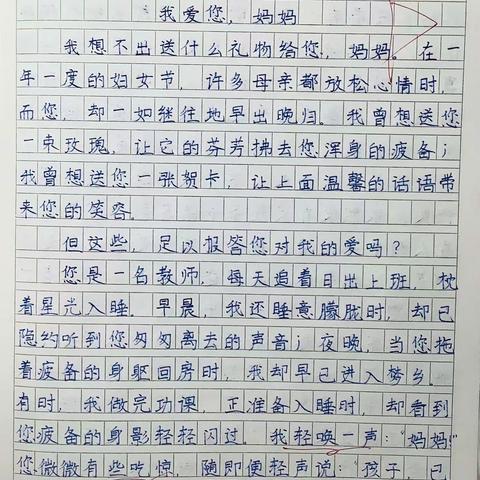 我爱您，妈妈
我想不出送什么礼物给您，妈妈。在一
年一度的妇女节，许多母亲都放松心情时，
而您，却一如继往地早出晚归。我曾想送您
一束玫瑰，让它的芬芳拂去您浑身的疲备；
我曾想送您一张贺卡，让上面温馨的话语带
来您的笑容。
但这些，足以报答您对我的爱吗？
您是一名教师，每天追着日出上班，枕
着星光入睡。早晨，我还睡意朦胧时，却已
隐约听到您匆匆离去的声音；夜晚，当您拖
着疲备的身躯回房时，我却早已进入梦乡。
有时，我做完功课，正准备入睡时，却看到
您疲备的身影轻轻闪过。我轻唤一声：“妈妈！”
您微微有些吃惊，随即便轻声说：“孩子，已